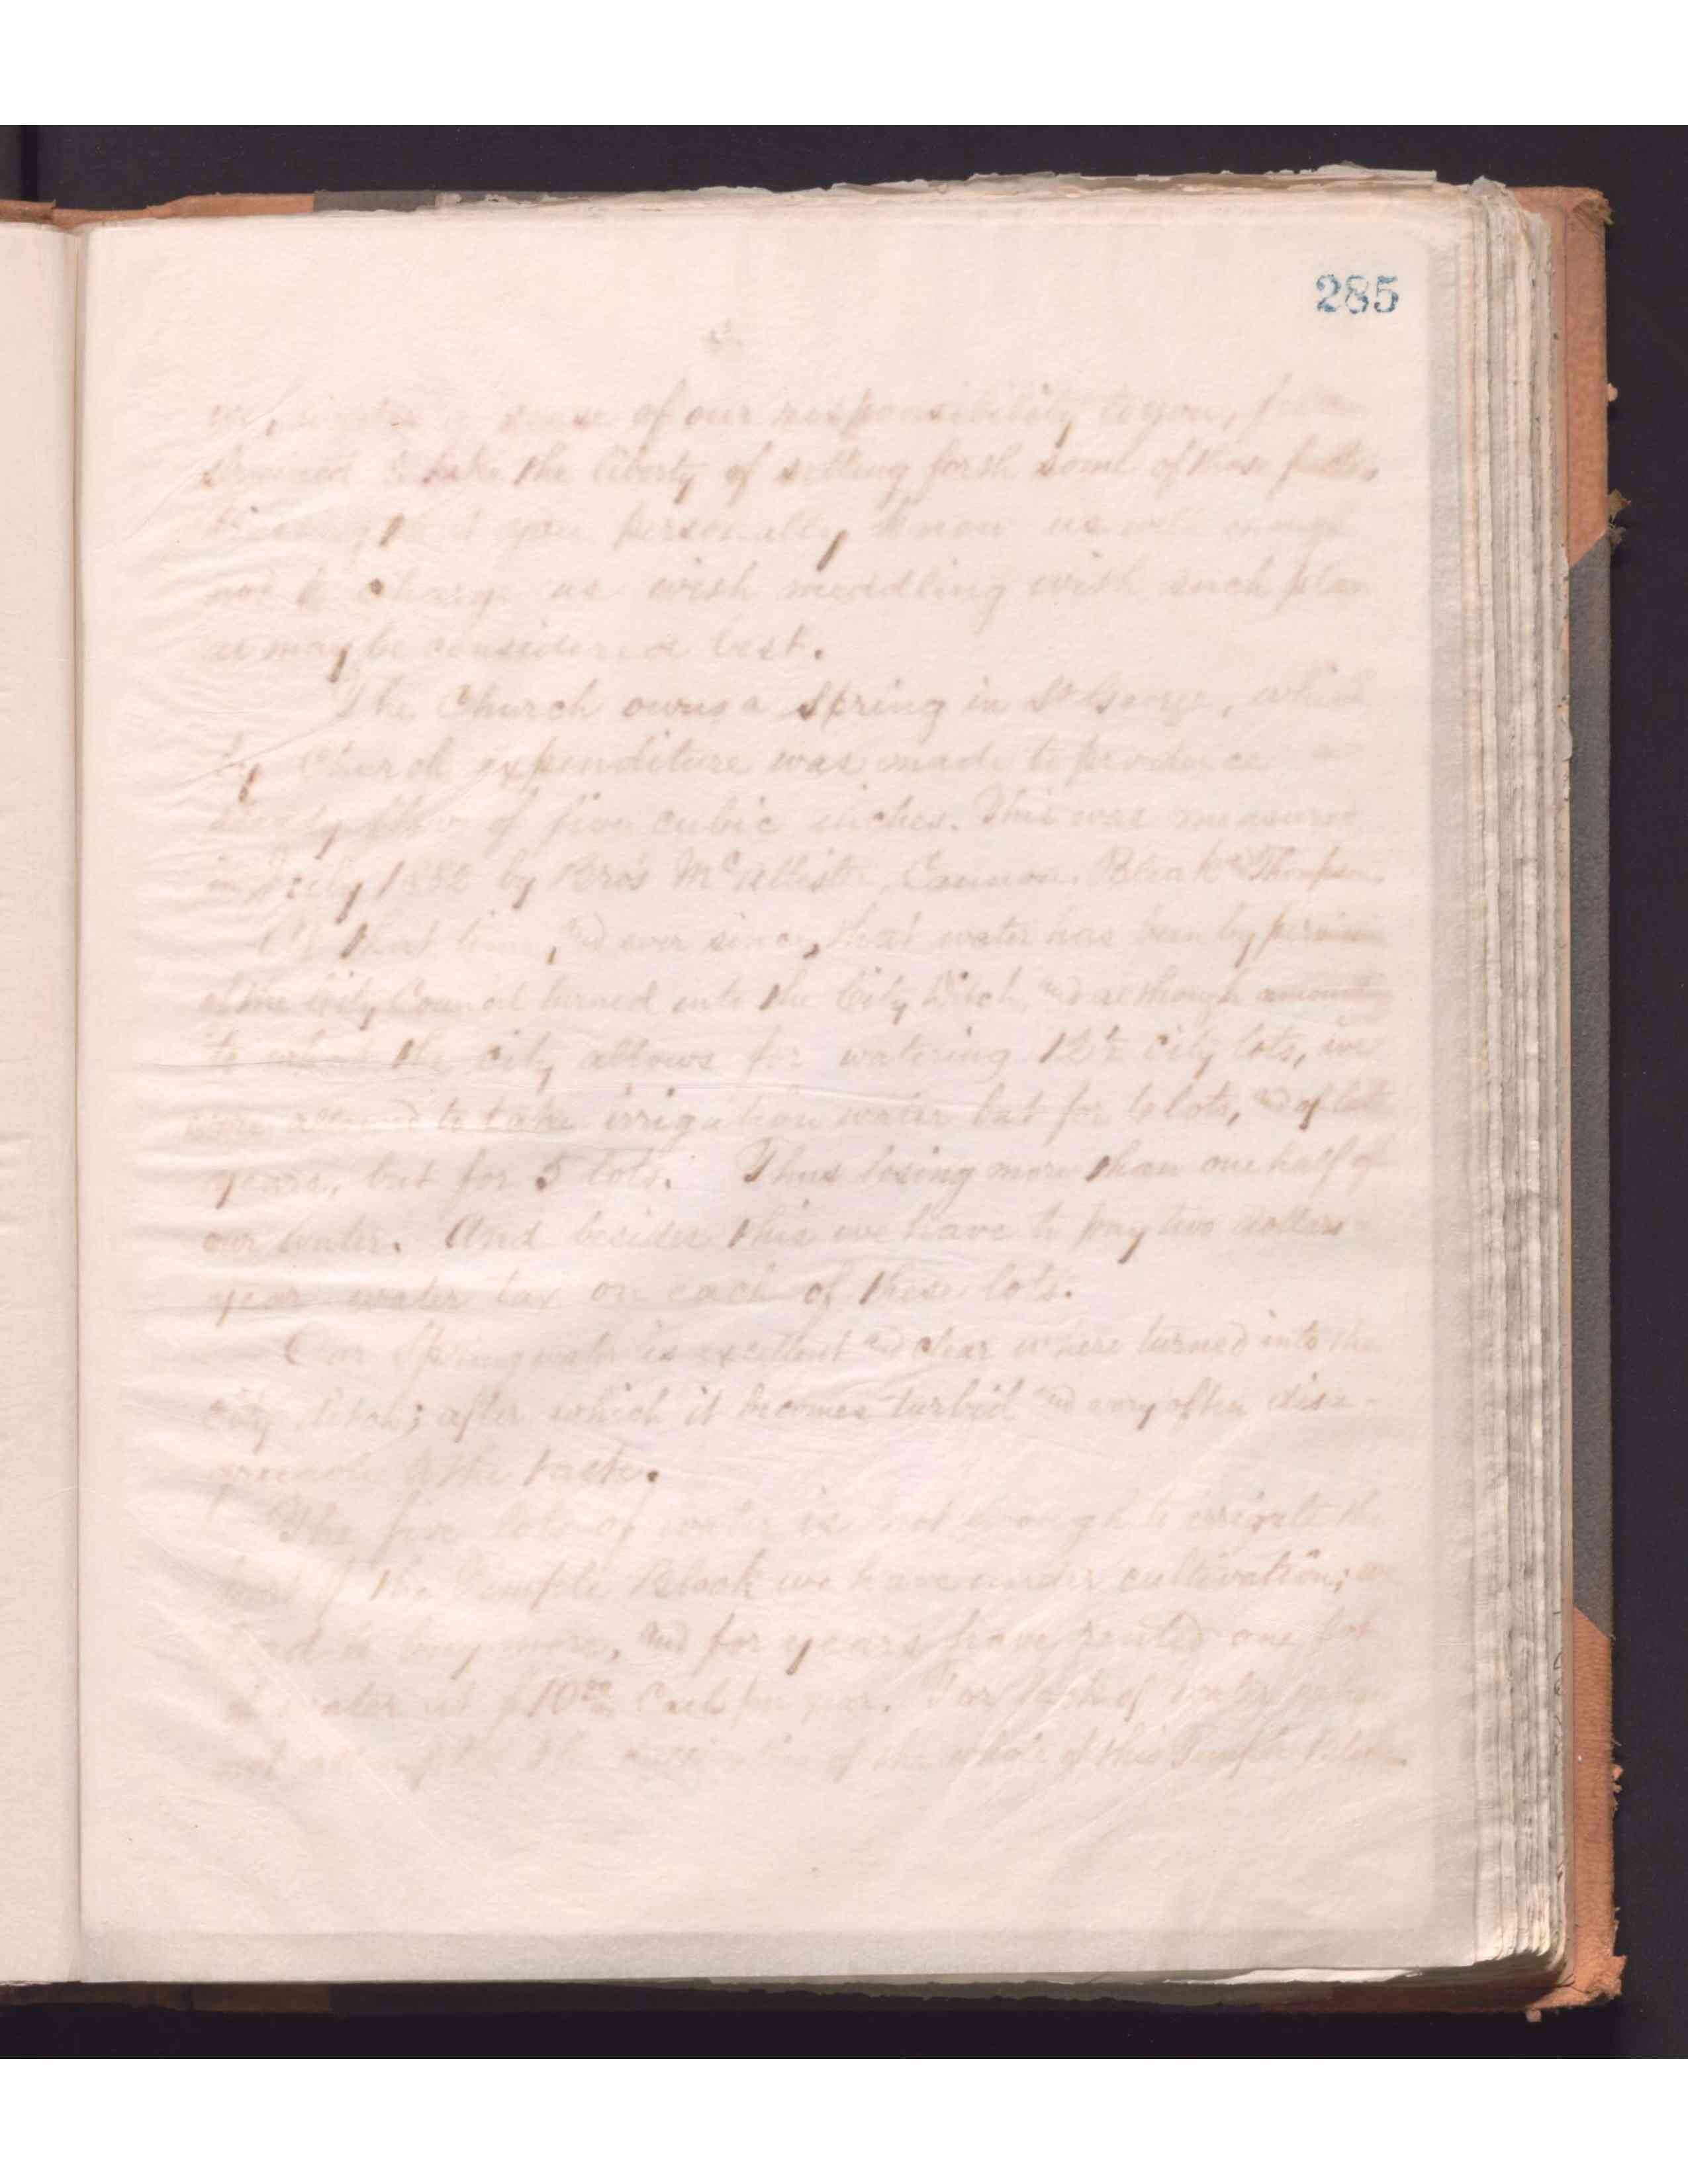 285
2
we, under a sense of our responsibility to you,
strained to take the liberty of setting forth some of those facts,
that you personally know us well enough
not to charge us with meddling with such plan
as may be considered best.
The Church owns a Spring in St George, which
by Church expenditure was made to produce a
steady flow of five cubic inches. This was measured
in July 1882 by Bros McAllister, Cannon, Bleak & Thompson.
At that time, and ever since, that water has been by permission
of the City Council turned into the City Ditch, and although amounting
to what the city allows for watering 12½ city lots, we
were allowed to take irrigation water but for 6 lots, and of late
years, but for 5 lots. Thus losing more than one half of
our water. And besides this we have to pay two dollars a
year water tax on each of these lots.
Our Spring water is excellent and clear where turned into the
city ditch; after which it becomes turbid and very often disa-
greeable to the taste.
The five lots of water is not enough to irrigate the
part of the Temple Block we have under cultivation; we
had to buy more, and for years have rented one lot
of water at $10.00 Cash per year. For lack of water
not the of the whole of this Temple Block